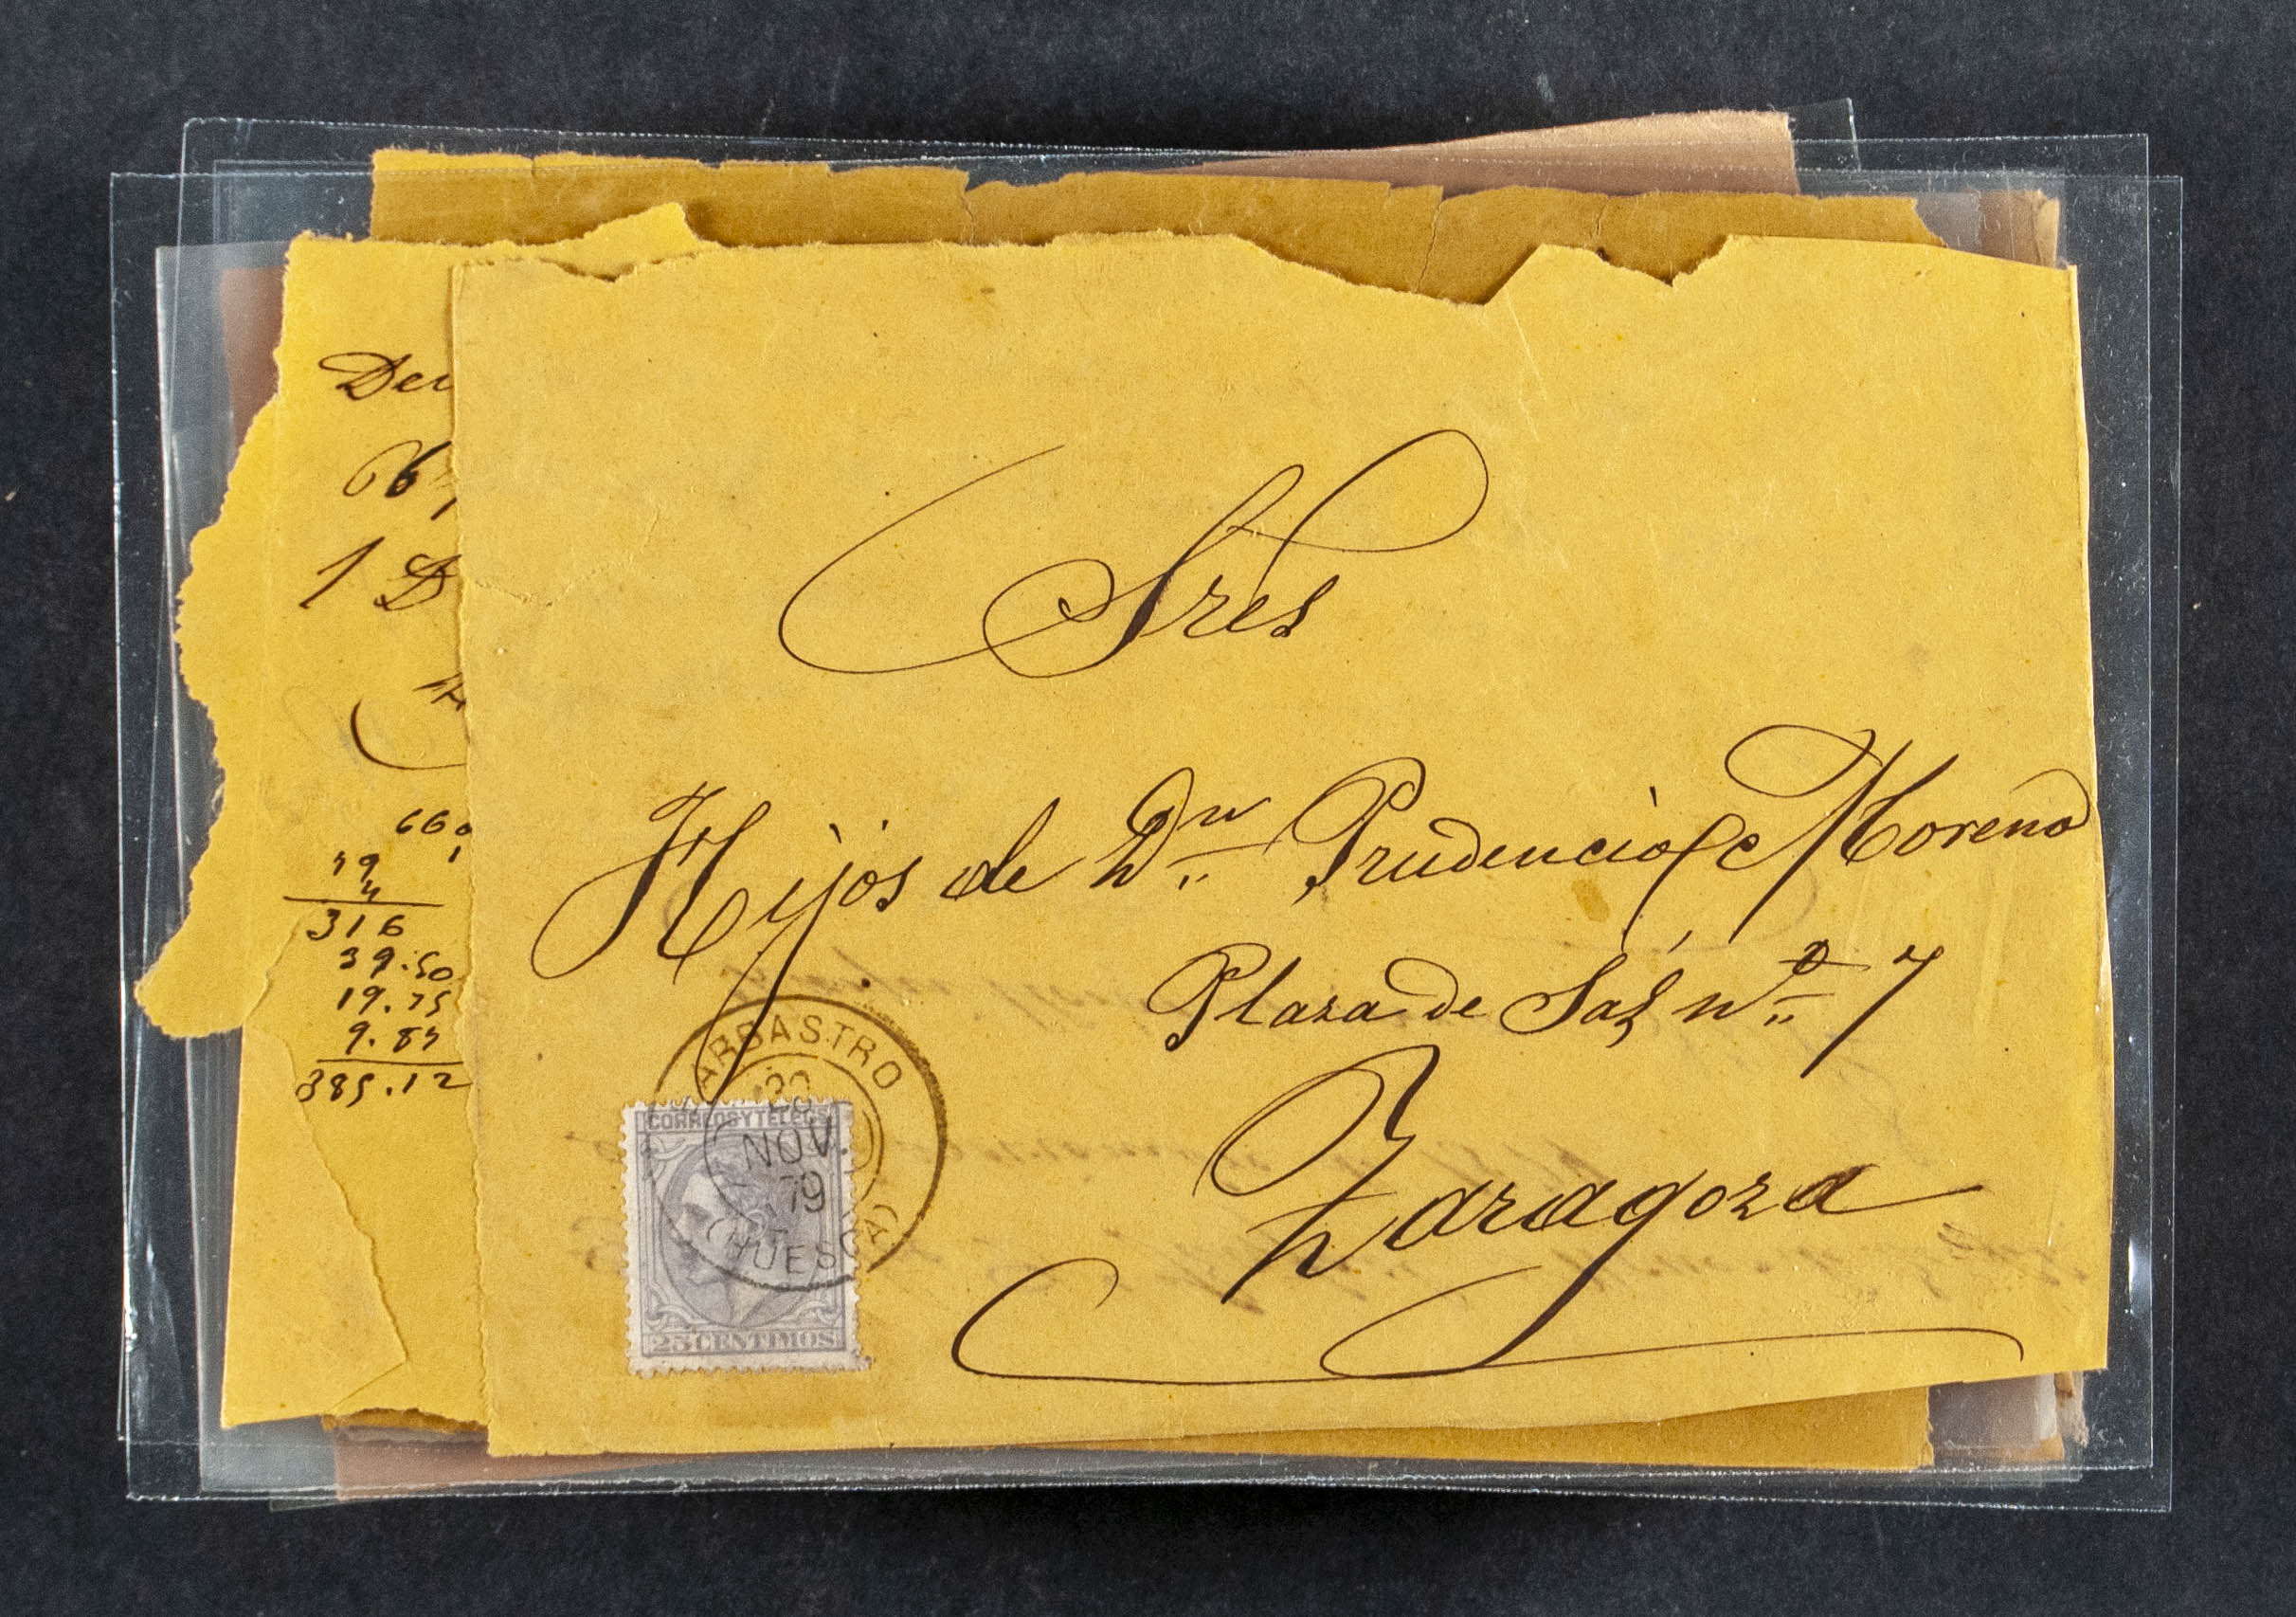 Sres
Hijos de Dn Prudencio Moreno
Plaza de Sas no 7
Zaragoza
BARBASTRO
NOV.
79
(HUESCA)
CORREOS Y TELEGS
25 CENTIMOS
66
1 D
79
4
316
39.50
19.75
9.87
385.12